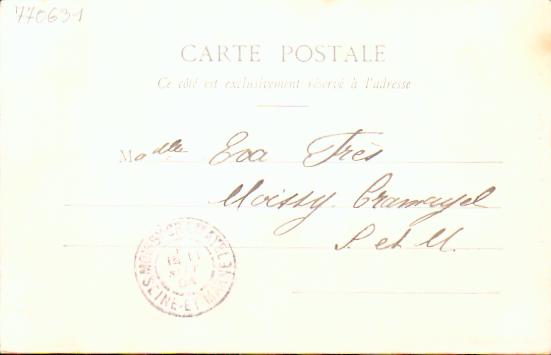 770631
CARTE POSTALE
Ce côté est exclusivement réservé à l'adresse
Madelle Eva Très
Moissy Cramayel
S. et M.
MOISSY-CRAMAYEL
SEINE-ET-MARNE